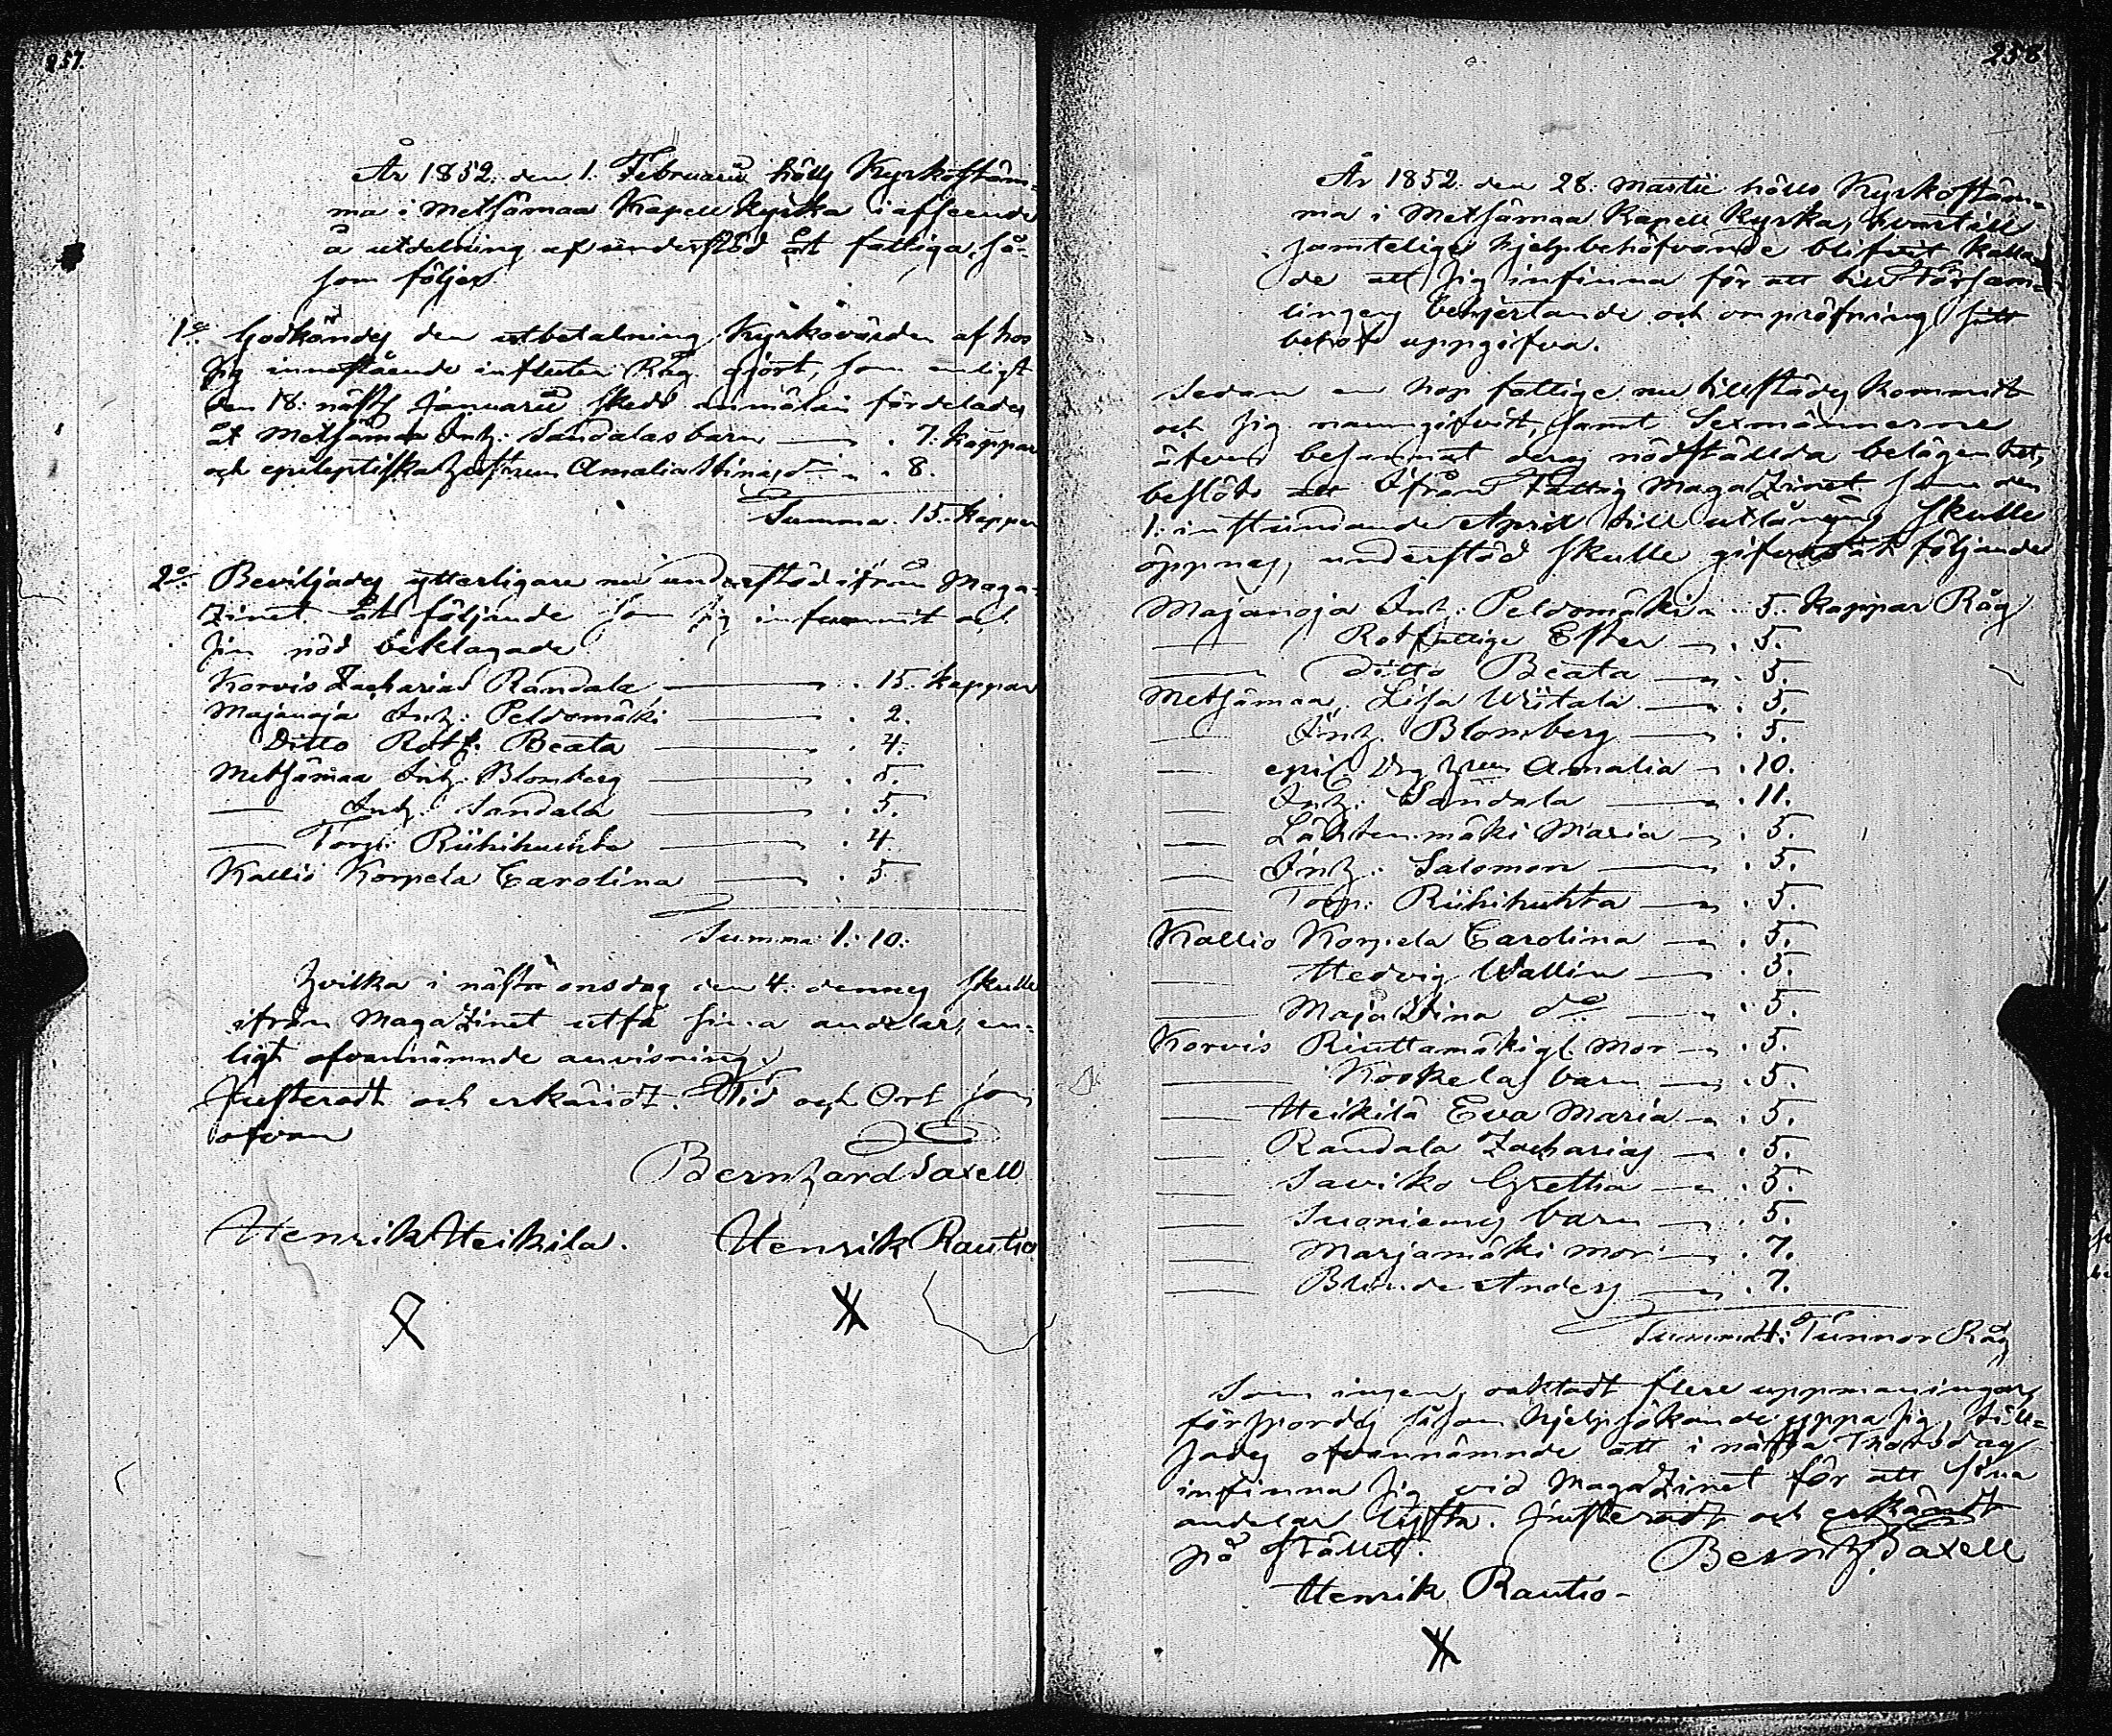 257.
År 1852. den 1. Februarii hölls Kyrkostäm-
ma i Metsämaa Kapell Kyrka i afseende
å utdelning af understöd åt fattiga, så-
som följer.
1o. Godkändes den utbetalning Kyrkovärden af hos
sig innestående influten Råg gjort, som enligt
den 18. näst. Januarii skedd anmälan fördelades
åt Metsämaa Inh: Sandalas barn — . 7. Kappar
och epileptiska Amalia Stina, do — . 8.
Summa. 15. Kappar
2o. Beviljades ytterligare nu understöd ifrån Maga-
zinet åt följande som sig infunnit och
sin nöd beklagade
Korvis Zacharias Randala — . 15. Kappar
Majanoja Inh: Peldomäki — . 2.
Ditto Rotf. Beata — . 4.
Metsämaa Inh: Blomberg — . 5.
— Inh: Sandala — . 5.
— Torp: Riihihuhta — . 4.
Kallio Korpela Carolina — . 5.
Summa 1. 10.
hvilka i nästa onsdag den 4. dennes skulle
ifrån Magazinet utfå sina andelar, en-
ligt ofvannämnde anvisning.
Justeradt och erkändt. Tid och Ort som
ofvan
Bernhard Saxell
Henrik Heikila. Henrik Rautio
258
År 1852. den 28. Martii hölls Kyrkostäm-
ma i Metsämaa Kapell Kyrka, hvartill
samtelige hjelpbehöfvande blifvit kalla-
de att sig infinna för att till Församl-
lingens behjertande och ompröfning sitt
behof uppgifva.
Sedan en hop fattige nu tillstädes kommit
och sig namngifvit, samt Sexmännerne
äfven besannat deras nödställda belägenhet,
beslöts att ifrån Fattig Magazinet som den
1. instundande April till utlåning skulle
öppnas, understöd skulle gifvas åt följande
Majanoja Inh: Peldomäki — . 5. Kappar Råg
— Rotfattige Ester — . 5.
— Ditto Beata — . 5.
Metsämaa, Lisa Wiitala — . 5.
— Inh. Blomberg — . 5.
— epil. Amalia — . 10.
— Inh: Sandala — . 11.
— Lähtenmäki Maria — . 5.
— Inh: Salomon — . 5.
— Torp: Riihihuhta — . 5.
Kallio Korpela Carolina — . 5.
— Hedvig Wallin — . 5.
— Maja Stina do — . 5.
Korvis Riuttamäki gl. Mor — . 5.
— Koskelas barn — . 5.
— Heikilä Eva Maria — . 5.
— Randala Zacharias — . 5.
— Saviko Gretha — . 5.
— Suoniemis barn — . 5.
— Marjamäki mor — . 7.
— Blinde Anders — . 7.
Summa 4. Tunnor Råg
Som ingen, oaktadt flere uppmaningar,
förspordes såsom hjelpsökande uppa sig, till-
sades ofvannämnde att i nästa Thorsdag
infinna sig vid Magazinet för att sina
andelar lyfta. Justeradt och erkändt
på stället.
Bernh. Saxell
Henrik Rautio